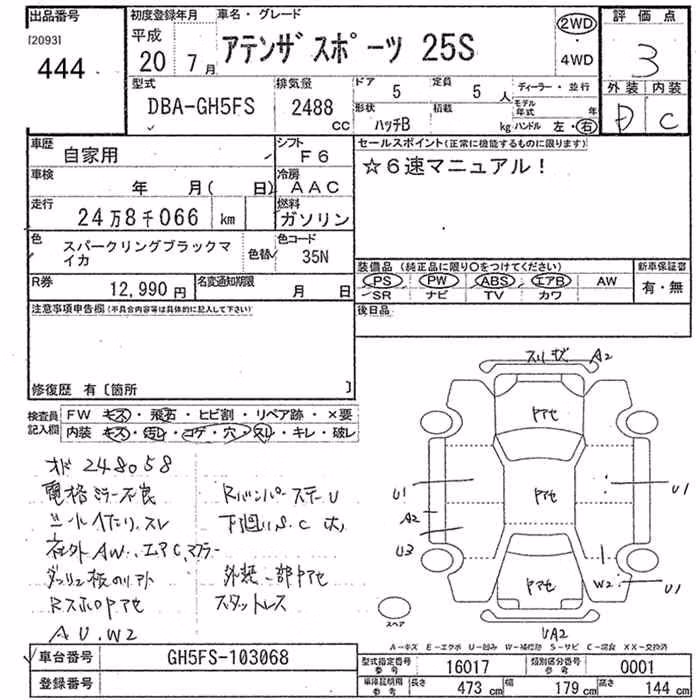 出品番号 初度登録年月 車名・グレード 2WD 評価点
[2093] 平成
444 20年 7月 アテンザスポーツ 25S ・4WD 3
型式 排気量 ドア 5 定員 5人 ディーラー・並行 外装 内装
DBA-GH5FS 2488cc 形状 ハッチB 積載 kg モデル年式 年 D C
ハンドル 左・右
車歴 自家用 シフト F6 セールスポイント(正常に機能するものに限ります)
車検 年 月( 日) 冷房 AAC ☆6速マニュアル!
走行 24万8千066 km 燃料 ガソリン
色 スパークリングブラックマイカ 色替 色コード 35N
装備品(純正品に限り○をつけてください) 新車保証書
R券 12,990円 名変通知期限 月 日 PS PW ABS エアB AW 有・無
SR ナビ TV カワ
注意事項申告欄(不具合内容等は具体的に記入して下さい) 後日品
修復歴 有〔箇所 〕
検査員記入欄 FW キズ・飛石・ヒビ割・リペア跡・×要
内装 キズ・汚レ・コゲ・穴・スレ・キレ・破レ
スリキズ A2
オド 248058
電格ミラー不良 RバンパーステーU
シートヘたり、スレ 下廻りS.C大
社外AW、エアC、マフラー
外装一部ヤアセ
スタットレス
AU、W2
ヤアセ
ヤアセ
ヤアセ
U1 A2 U3 U1 W2 U1
UA2
スペア
A-キズ E-エクボ U-凹み W-補修跡 S-サビ C-腐食 XX-交換済
車台番号 GH5FS-103068 型式指定番号 参考 16017 類別区分番号 参考 0001
登録番号 車庫証明用 参考 長さ 473cm 幅 179cm 高さ 144cm